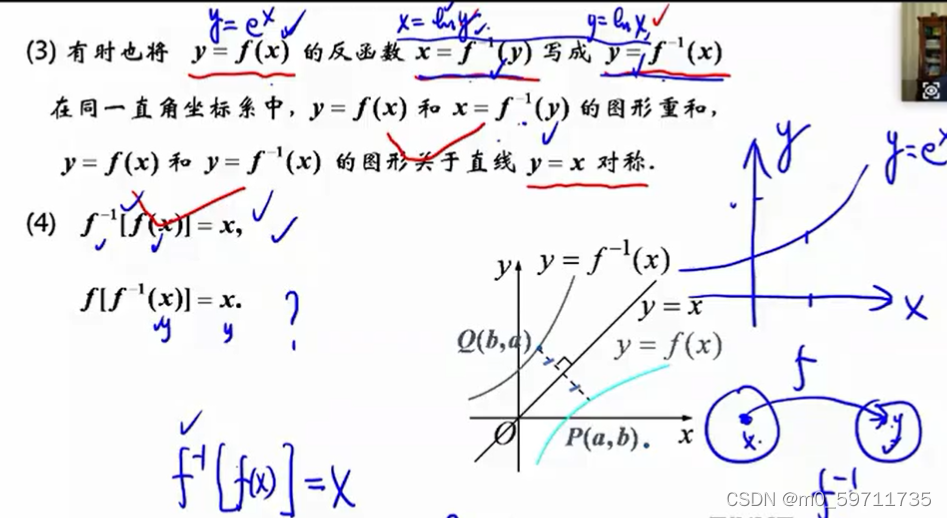 y=eˣ x=ln y y=ln x
(3) 有时也将 y=f(x) 的反函数 x=f⁻¹(y) 写成 y=f⁻¹(x)
在同一直角坐标系中, y=f(x) 和 x=f⁻¹(y) 的图形重和,
y=f(x) 和 y=f⁻¹(x) 的图形关于直线 y=x 对称.
(4) f⁻¹[f(x)]=x,
f[f⁻¹(x)]=x. ?
y y
y
y=eˣ
x
y
y=f⁻¹(x)
y=x
Q(b,a)
y=f(x)
O
P(a,b)
x
f
x y
f⁻¹
f⁻¹[f(x)]=x
CSDN @m0_59711735